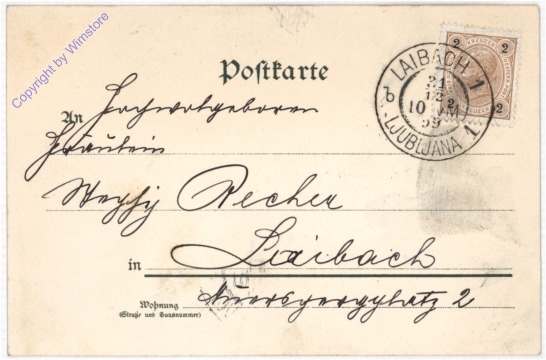 Copyright by Wimstore
Postkarte
2 2
2 2
LAIBACH 1
31
12
10 VM
99
LJUBLJANA 1
b
An Hochwolgeboren
Fräulein
Recher
in Laibach
Wohnung
(Straße und Hausnummer)
Auerspergplatz 2